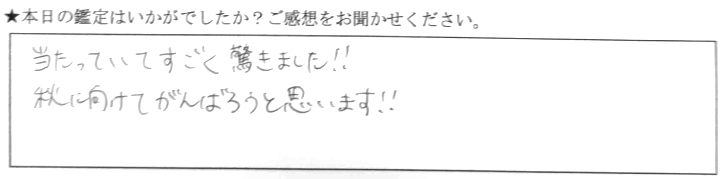 ★本日の鑑定はいかがでしたか？ご感想をお聞かせください。
当たっていてすごく驚きました!!
秋に向けてがんばろうと思います!!